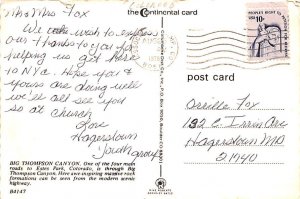 the Continental card
Mr & Mrs Fox
We wish to express
our thanks to you for
helping us get here
to NYC. Hope you &
yours are doing well
we'll all see you
so at church
Love
Hagerstown
Youth group
BIG THOMPSON CANYON. One of the four main
roads to Estes Park, Colorado, is through Big
Thompson Canyon. Here awe-inspiring massive rock
formations can be seen from the modern scenic
highway.
B4147
USA 10c
post card
Orville Fox
132 E Irvin Ave
Hagerstown MD
21740